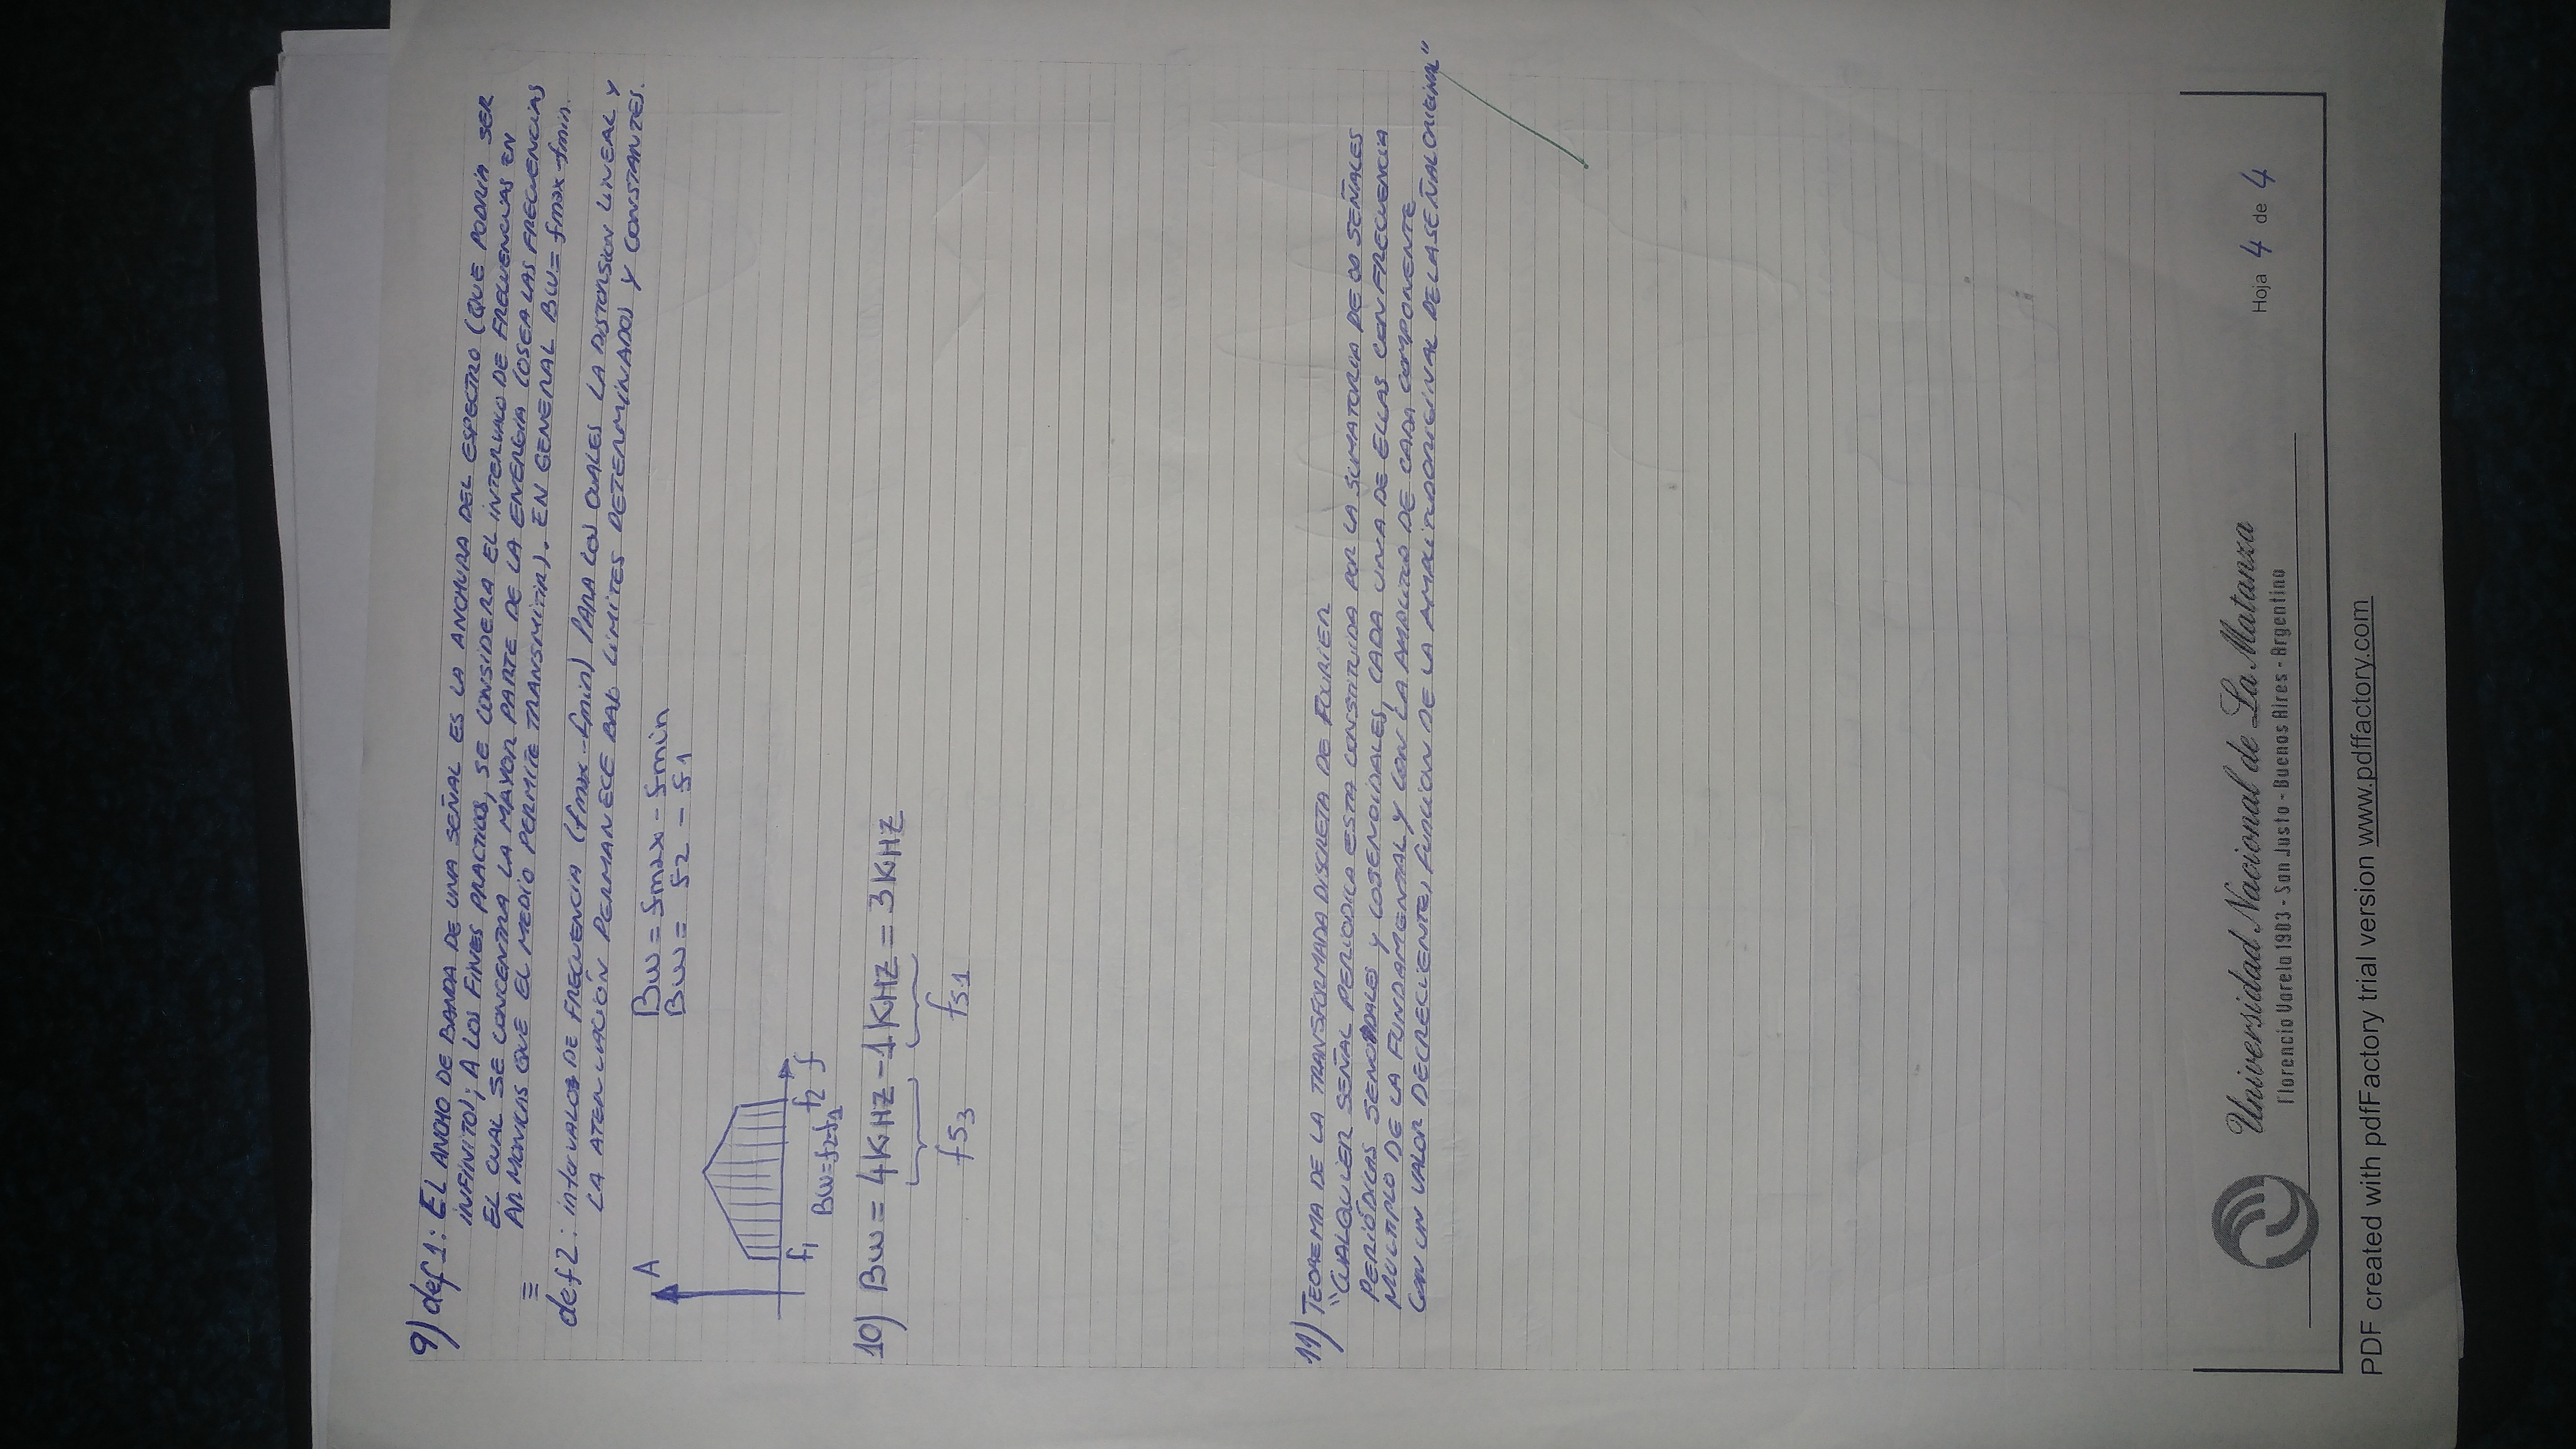 9) def 1: EL ANCHO DE BANDA DE UNA SEÑAL ES LA ANCHURA DEL ESPECTRO (QUE PODRÍA SER
INFINITO); A LOS FINES PRACTICOS, SE CONSIDERA EL INTERVALO DE FRECUENCIAS EN
EL CUAL SE CONCENTRA LA MAYOR PARTE DE LA ENERGÍA (OSEA LAS FRECUENCIAS
ARMONICAS QUE EL MEDIO PERMITE TRANSMITIR). EN GENERAL BW = fmax - fmin.
≡
def 2: intervalos DE FRECUENCIA (fmax - fmin) PARA LOS CUALES LA DISTORSION LINEAL Y
LA ATENUACIÓN PERMANECE BAJO LÍMITES DETERMINADOS Y CONSTANTES.
A
BW = fmax - fmin
BW = f2 - f1
f1 f2 f
BW = f2-f1
10) BW = 4KHZ - 1KHZ = 3KHZ
fS3 fS1
11) TEOREMA DE LA TRANSFORMADA DISCRETA DE FOURIER
"CUALQUIER SEÑAL PERIODICA ESTA CONSTITUIDA POR LA SUMATORIA DE ∞ SEÑALES
PERIÓDICAS SENOIDALES Y COSENOIDALES, CADA UNA DE ELLAS CON FRECUENCIA
MULTIPLO DE LA FUNDAMENTAL Y CON LA AMPLITUD DE CADA COMPONENTE
CON UN VALOR DECRECIENTE, FUNCION DE LA AMPLITUD ORIGINAL DE LA SEÑAL ORIGINAL"
Universidad Nacional de La Matanza
Florencio Varela 1903 - San Justo - Buenos Aires - Argentina
Hoja 4 de 4
PDF created with pdfFactory trial version www.pdffactory.com